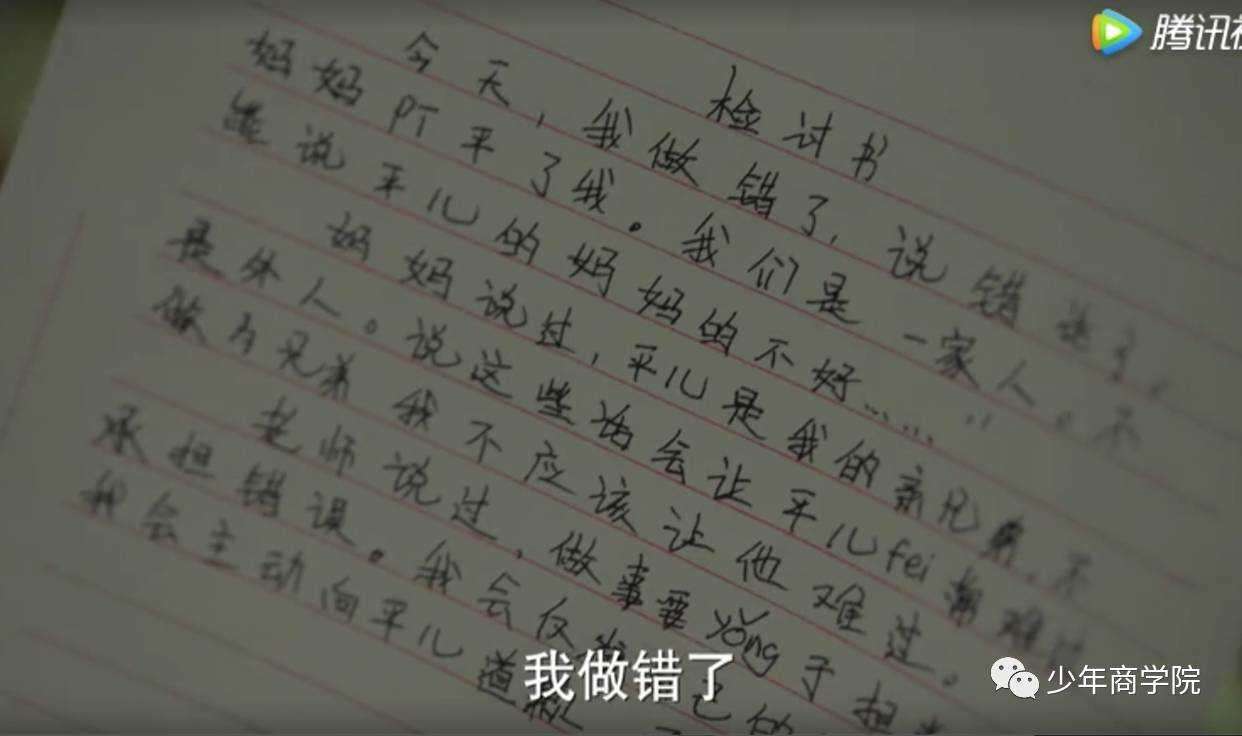 腾讯视
检讨书
今天,我做错了,说错话了,
妈妈PT平了我。我们是一家人。不
能说平儿的妈妈的不好……"
妈妈说过,平儿是我的亲兄弟,不
是外人。说这些话会让平儿fei常难过
做为兄弟 我不应该让他难过。
老师说过,做事要yǒng于担当
承担错误。我会仅 己的
我会主动向平儿道歉
我做错了
少年商学院